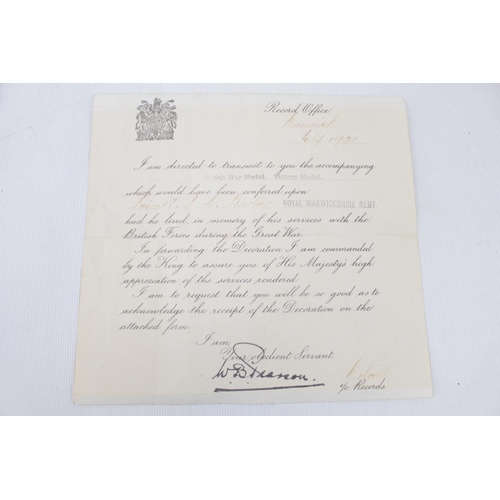 Record Office,
Warwick
July 1921
I am directed to transmit to you the accompanying
British War Medal, Victory Medal
which would have been conferred upon
ROYAL WARWICKSHIRE REGT
had he lived, in memory of his services with the
British Forces during the Great War.
In forwarding the Decoration I am commanded
by the King to assure you of His Majesty's high
appreciation of the services rendered.
I am to request that you will be so good as to
acknowledge the receipt of the Decoration on the
attached form.
I am,
Your obedient Servant,
W. B. Pearson.
i/c Records